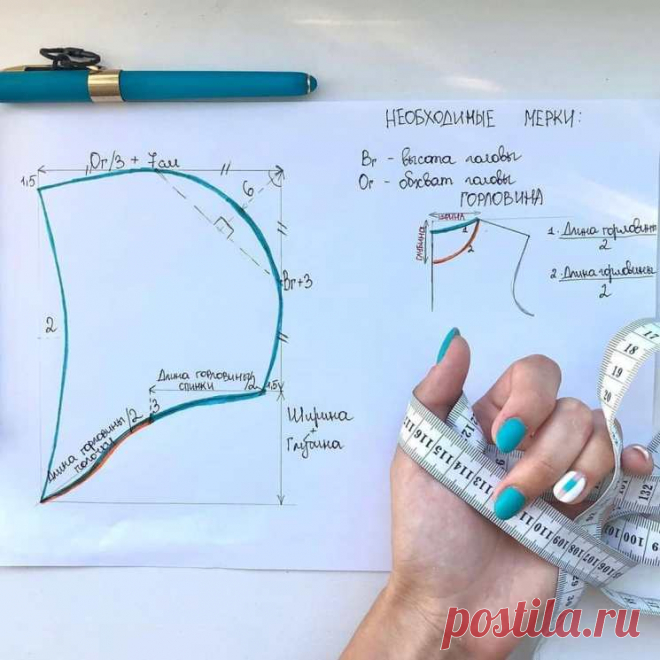 НЕОБХОДИМЫЕ МЕРКИ:
Вг - высота головы
Ог - обхват головы
ГОРЛОВИНА
ШИРИНА
ГЛУБИНА
1
2
1. Длина горловины
2
2. Длина горловины
2
Ог/3 + 7см
1,5
6
Вг+3
2
Длина горловины
спинки /2
1,5
3
Длина горловины /2
полочки
Ширина
+
Глубина
17
18
19
20
12
116
115
114
113
112
111
110
109
108
107
106
132
100
postila.ru